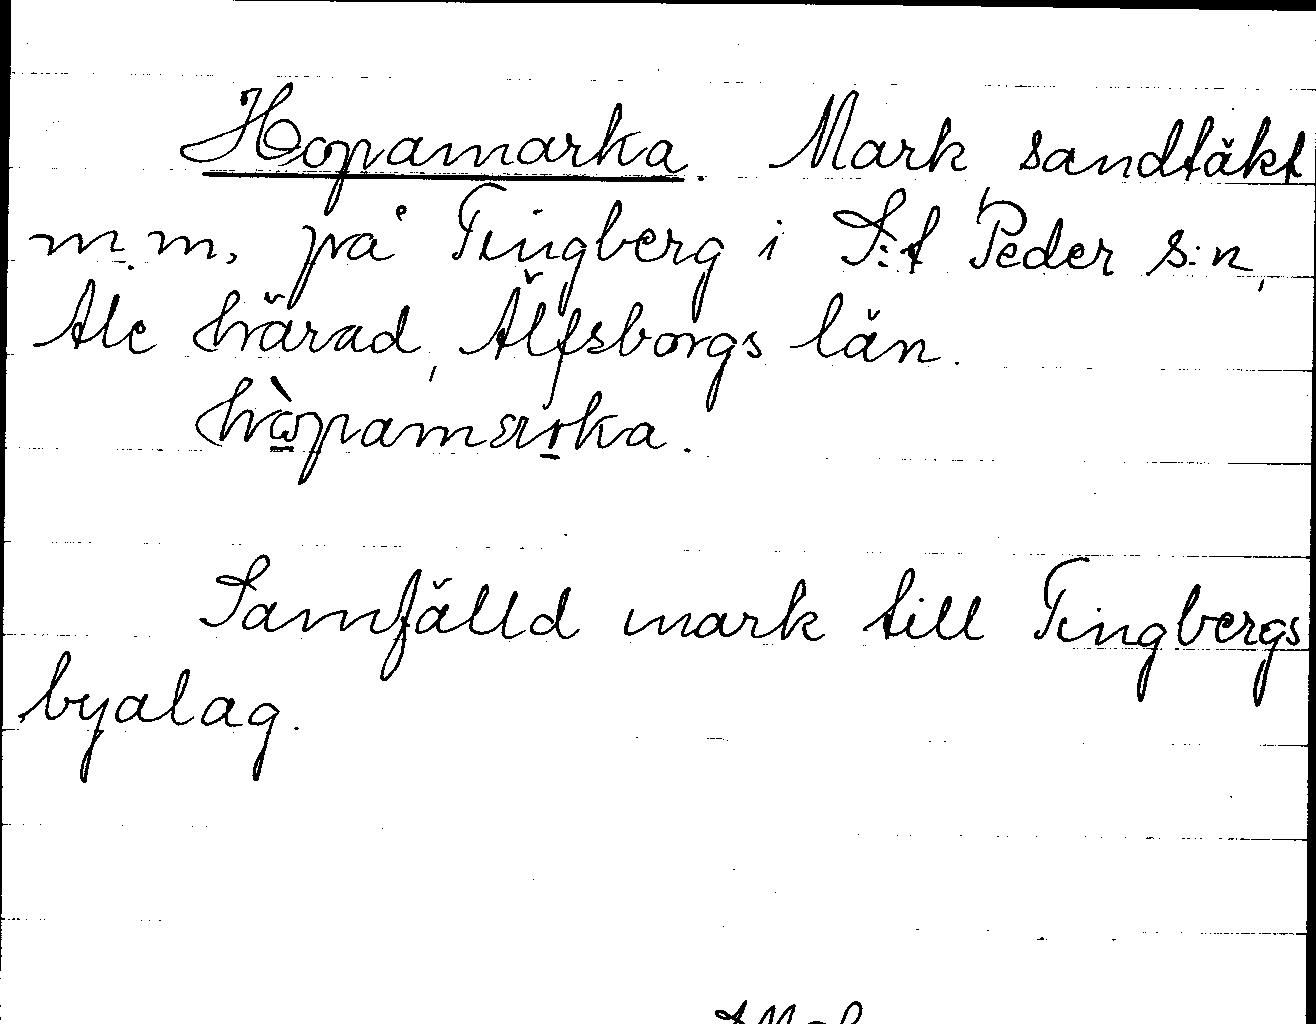 Hopamarka. Mark sandtäkt
m.m. på Tingberg i S:t Peder s:n,
Ale härad, Älfsborgs län.
Samfälld mark till Tingbergs
byalag.